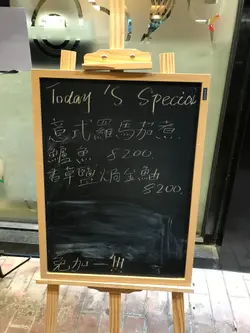 Today'S Special
意式羅馬茄煮
鱸魚 $200
香草鹽焗金鯧
$200
免加一!!!